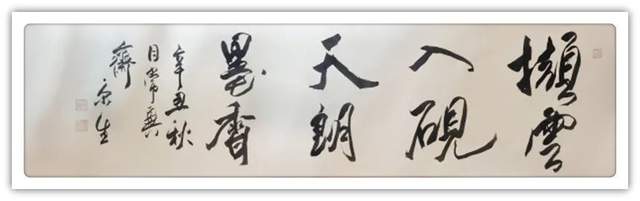 擷雲
入硯
天朗
墨香
辛丑秋
常興
齋京生